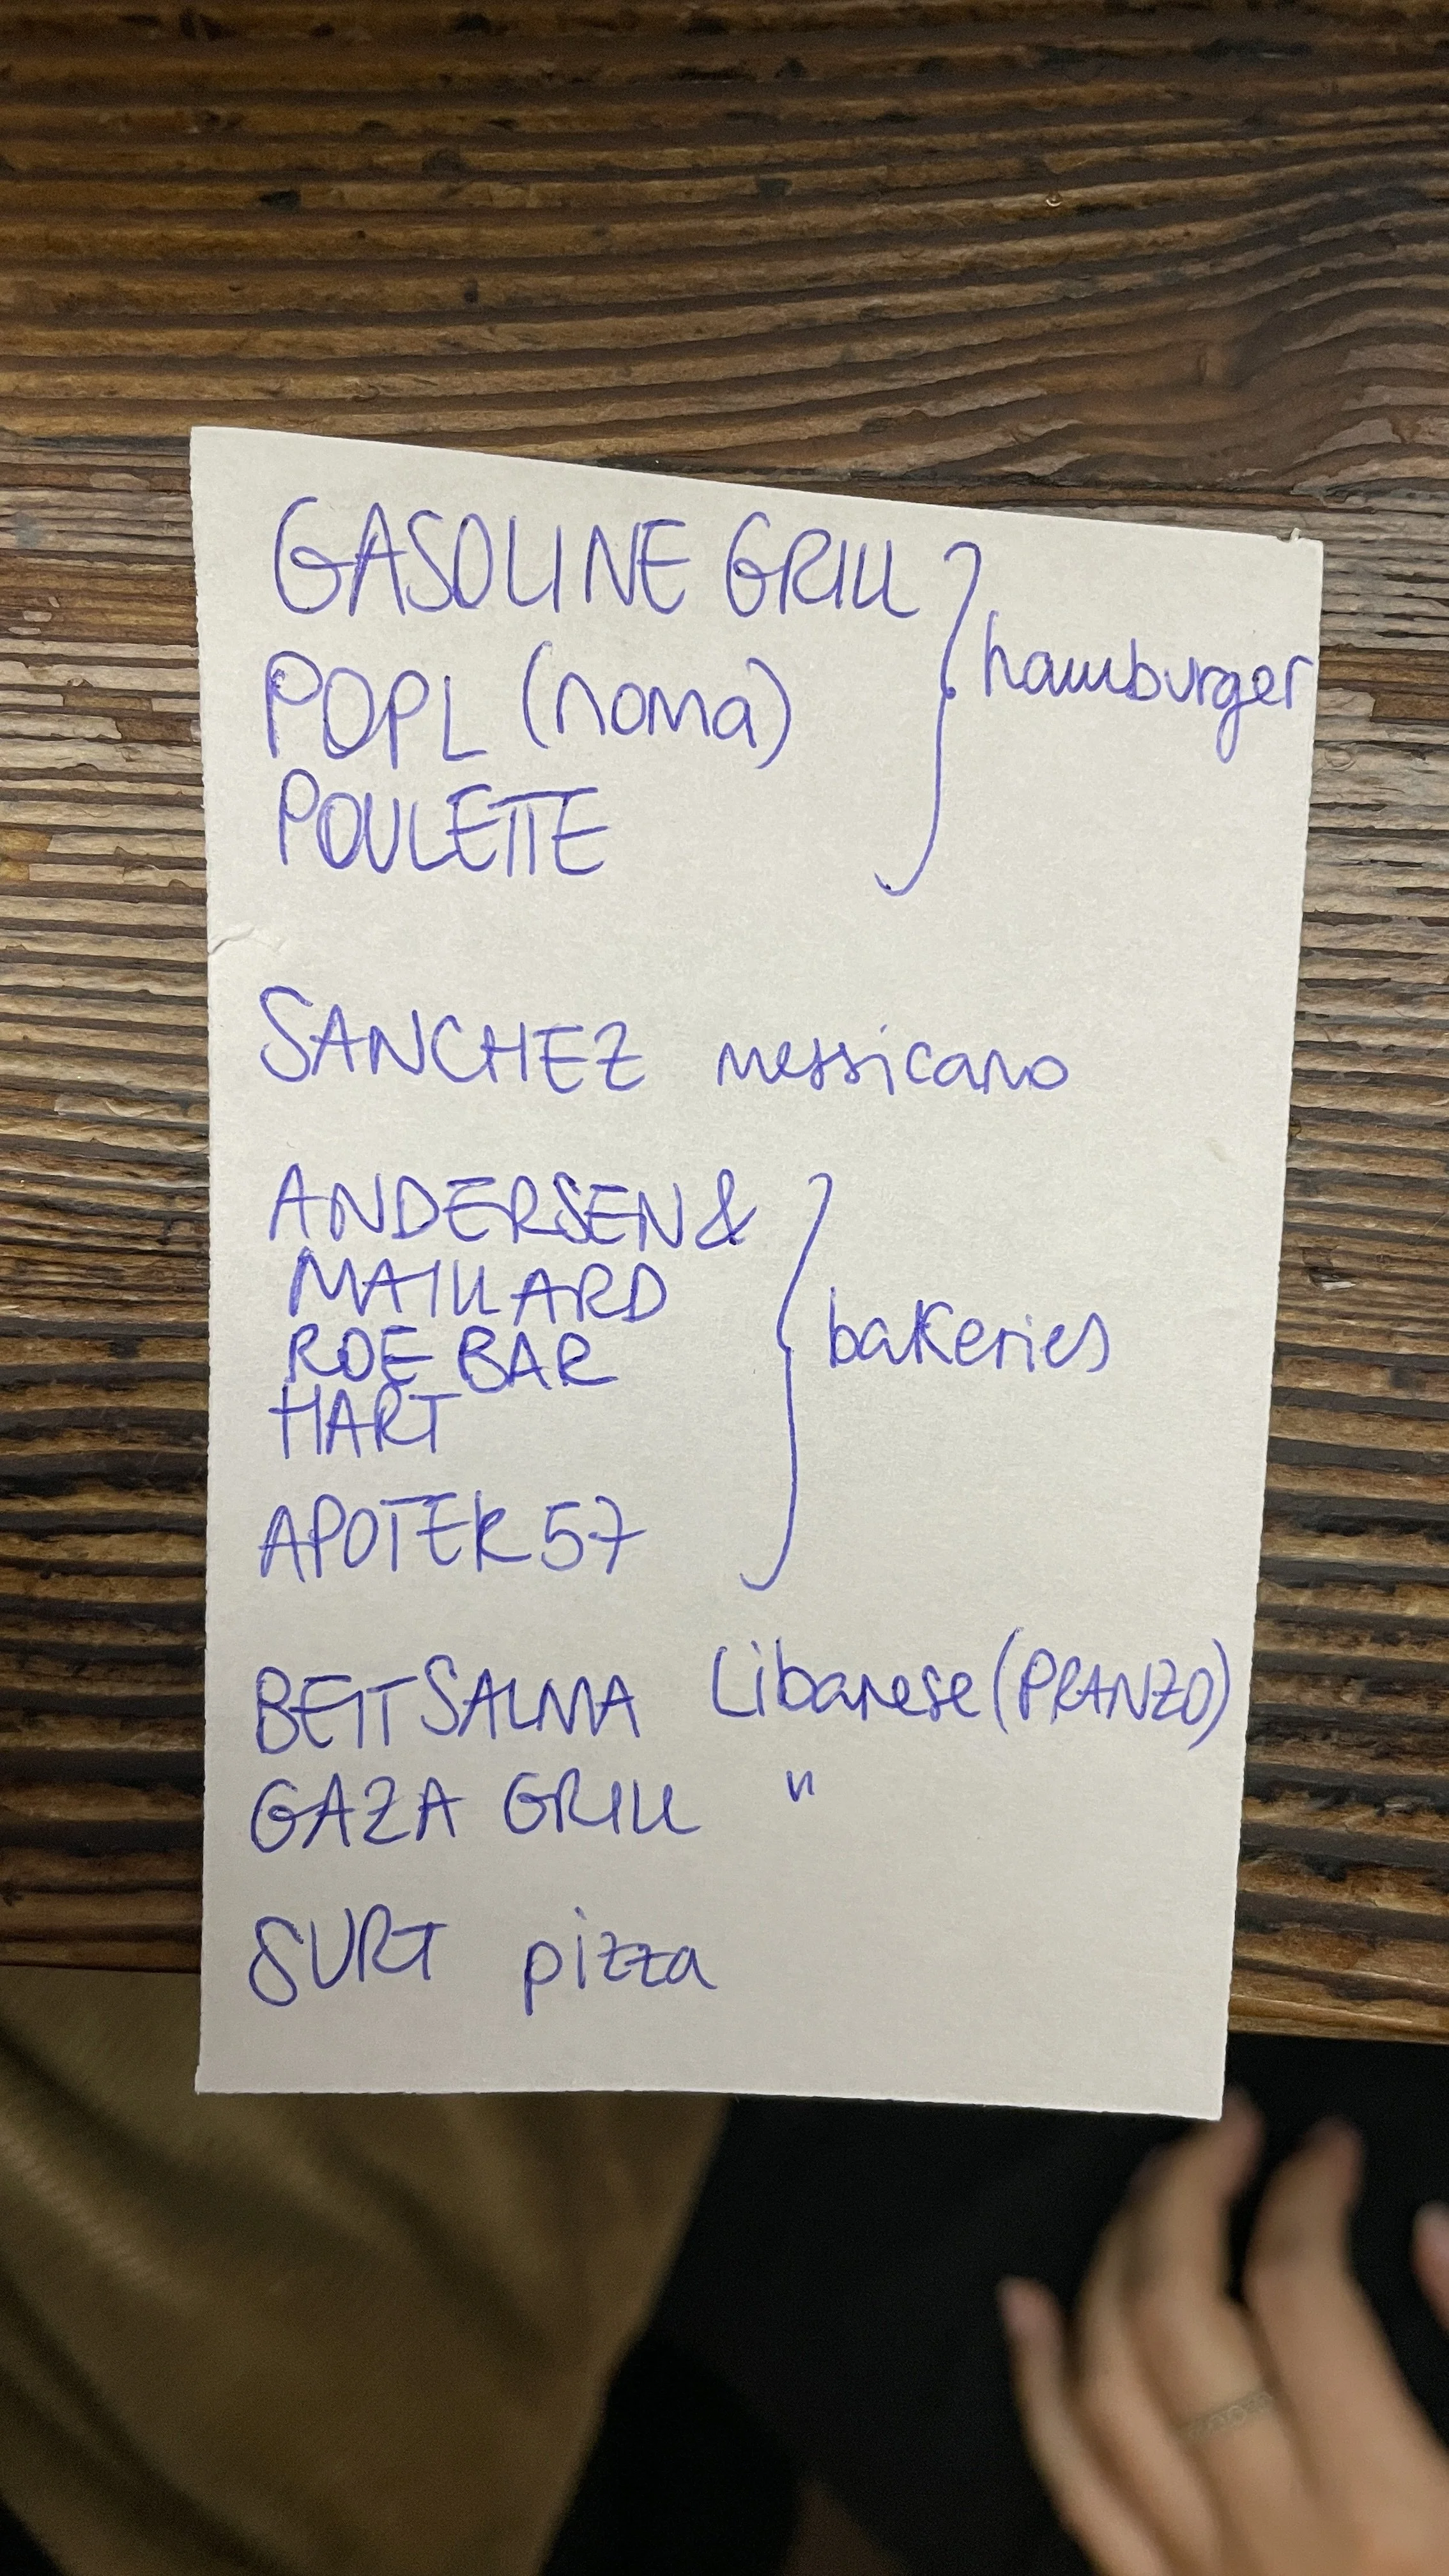 GASOLINE GRILL
POPL (noma)
POULETTE
hamburger
SANCHEZ messicano
ANDERSEN &
MAILLARD
ROE BAR
HART
APOTEK 57
bakeries
BEIT SALMA Libanese (PRANZO)
GAZA GRILL "
SURT pizza